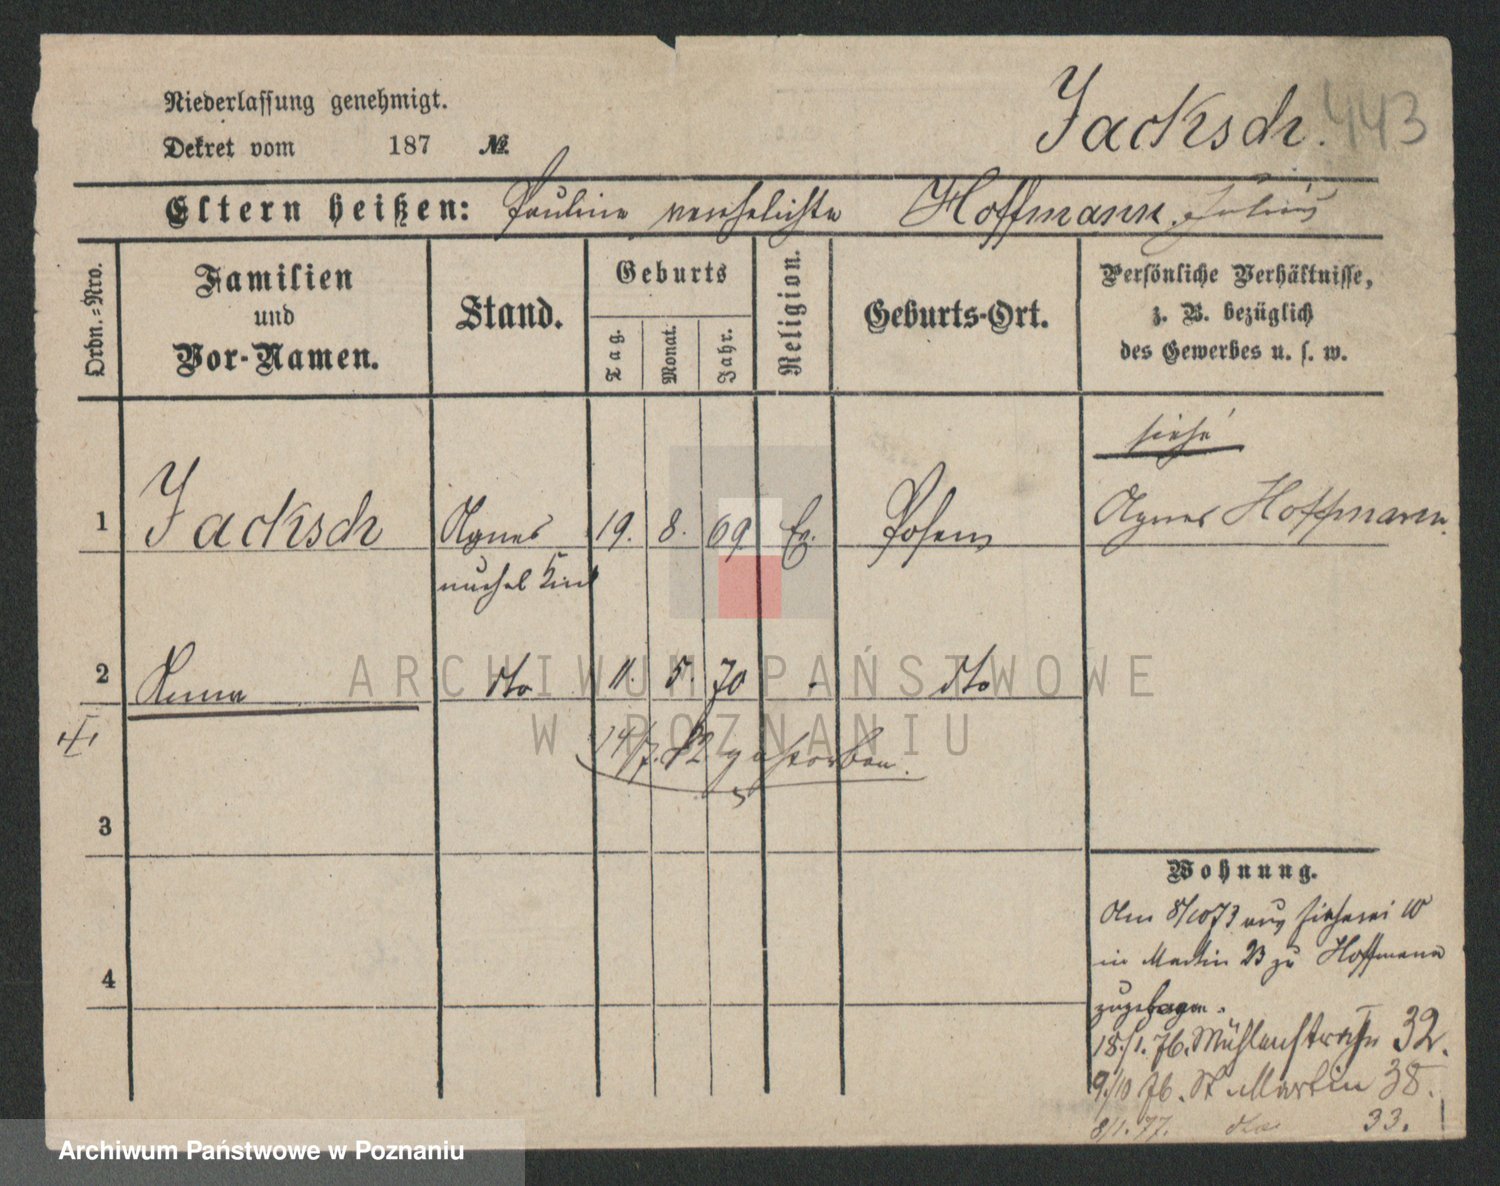 Niederlassung genehmigt.
Jacksch. 443
Dekret vom 187 №
Eltern heißen: Pauline verehelichte Hoffmann, Julius
Ordn.-Nro.
Familien und Vor-Namen.
Stand.
Geburts
Tag.
Monat.
Jahr.
Religion.
Geburts-Ort.
Persönliche Verhältnisse,
z. B. bezüglich
des Gewerbes u. s. w.
siehe
1 Jacksch Agnes 19. 8. 69. Ev. Posen Agnes Hoffmann.
unehel Kind
2 Anna dto 11. 5. 70 dto
14/7. 82 gestorben.
3
4
Wohnung.
Am 8/10 73 aus 10
in Martin 23 zu Hoffmann
zugezogen.
18./1. 76. Mühlenstraße 32.
9./10 76. St Martin 38.
8/1. 77. dto 33.
ARCHIWUM PAŃSTWOWE
W POZNANIU
Archiwum Państwowe w Poznaniu